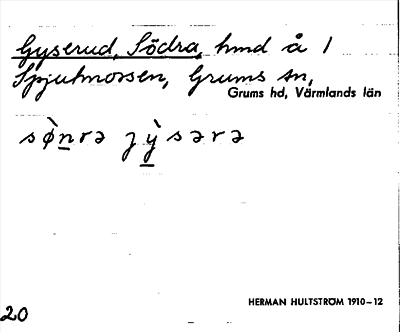 Gyserud, Södra, hmd å 1
Spjutmossen, Grums sn,
Grums hd, Värmlands län
sø̀nrə jỳsərə
HERMAN HULTSTRÖM 1910–12
20